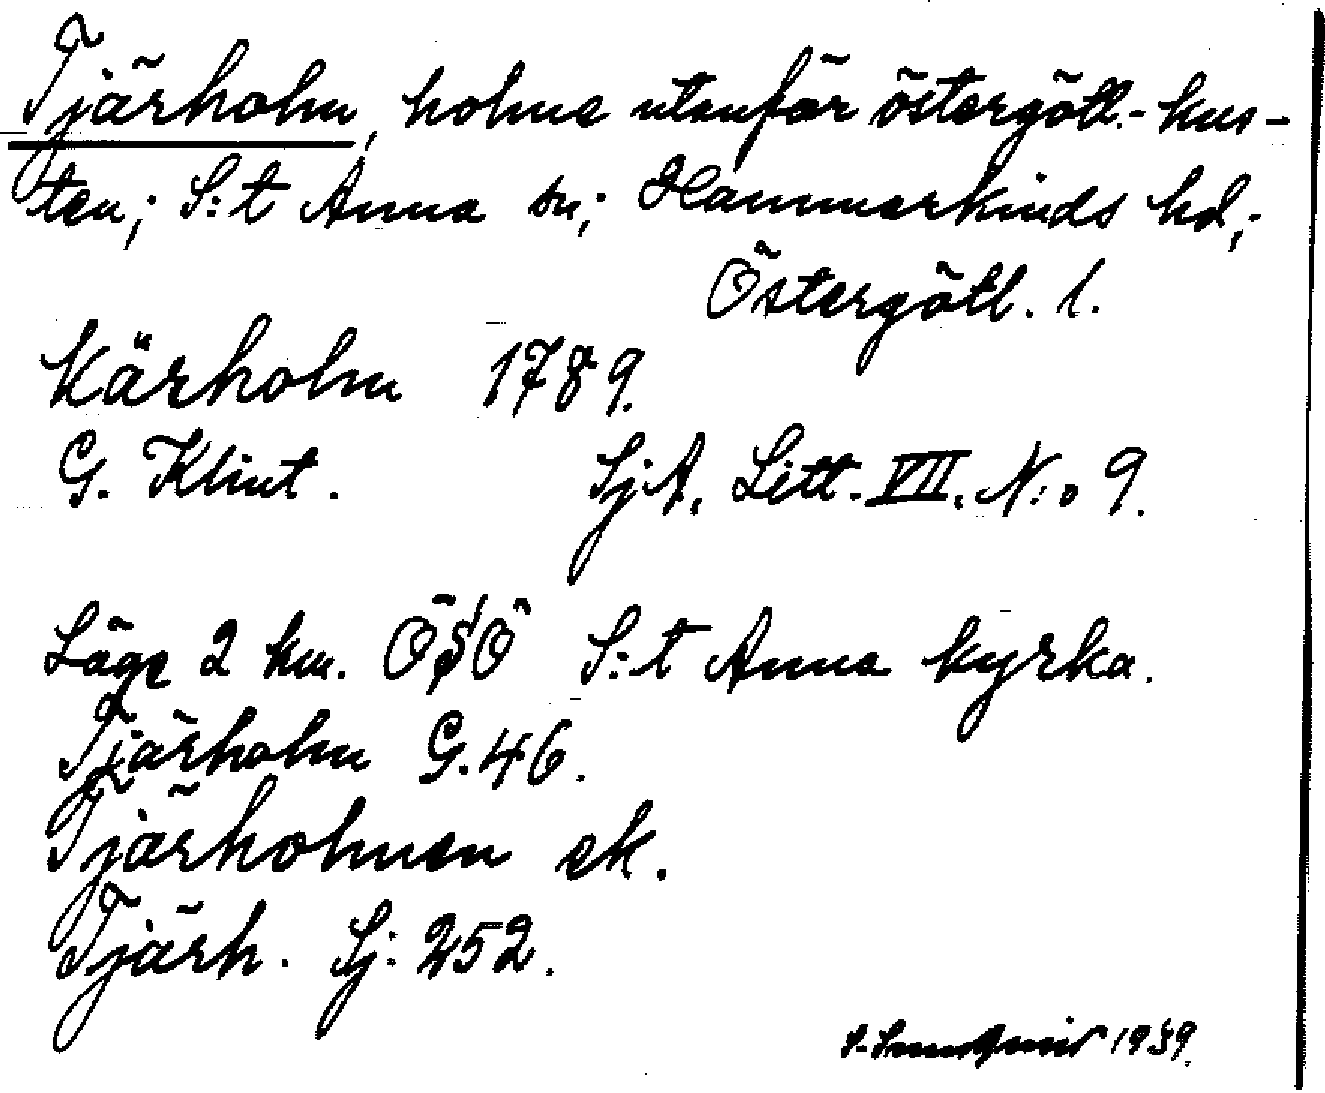 Tjärholm, holme utanför östergötl.-kus-
ten; S:t Anna sn; Hammarkinds hd;
Östergötl. l.
Kärholm 1789.
G. Klint. SjA. Litt. VII. N:o 9.
Läge 2 km. ÖSÖ S:t Anna kyrka.
Tjärholm G.46.
Tjärholmen ek.
Tjärh. Sj: 252.
1939.